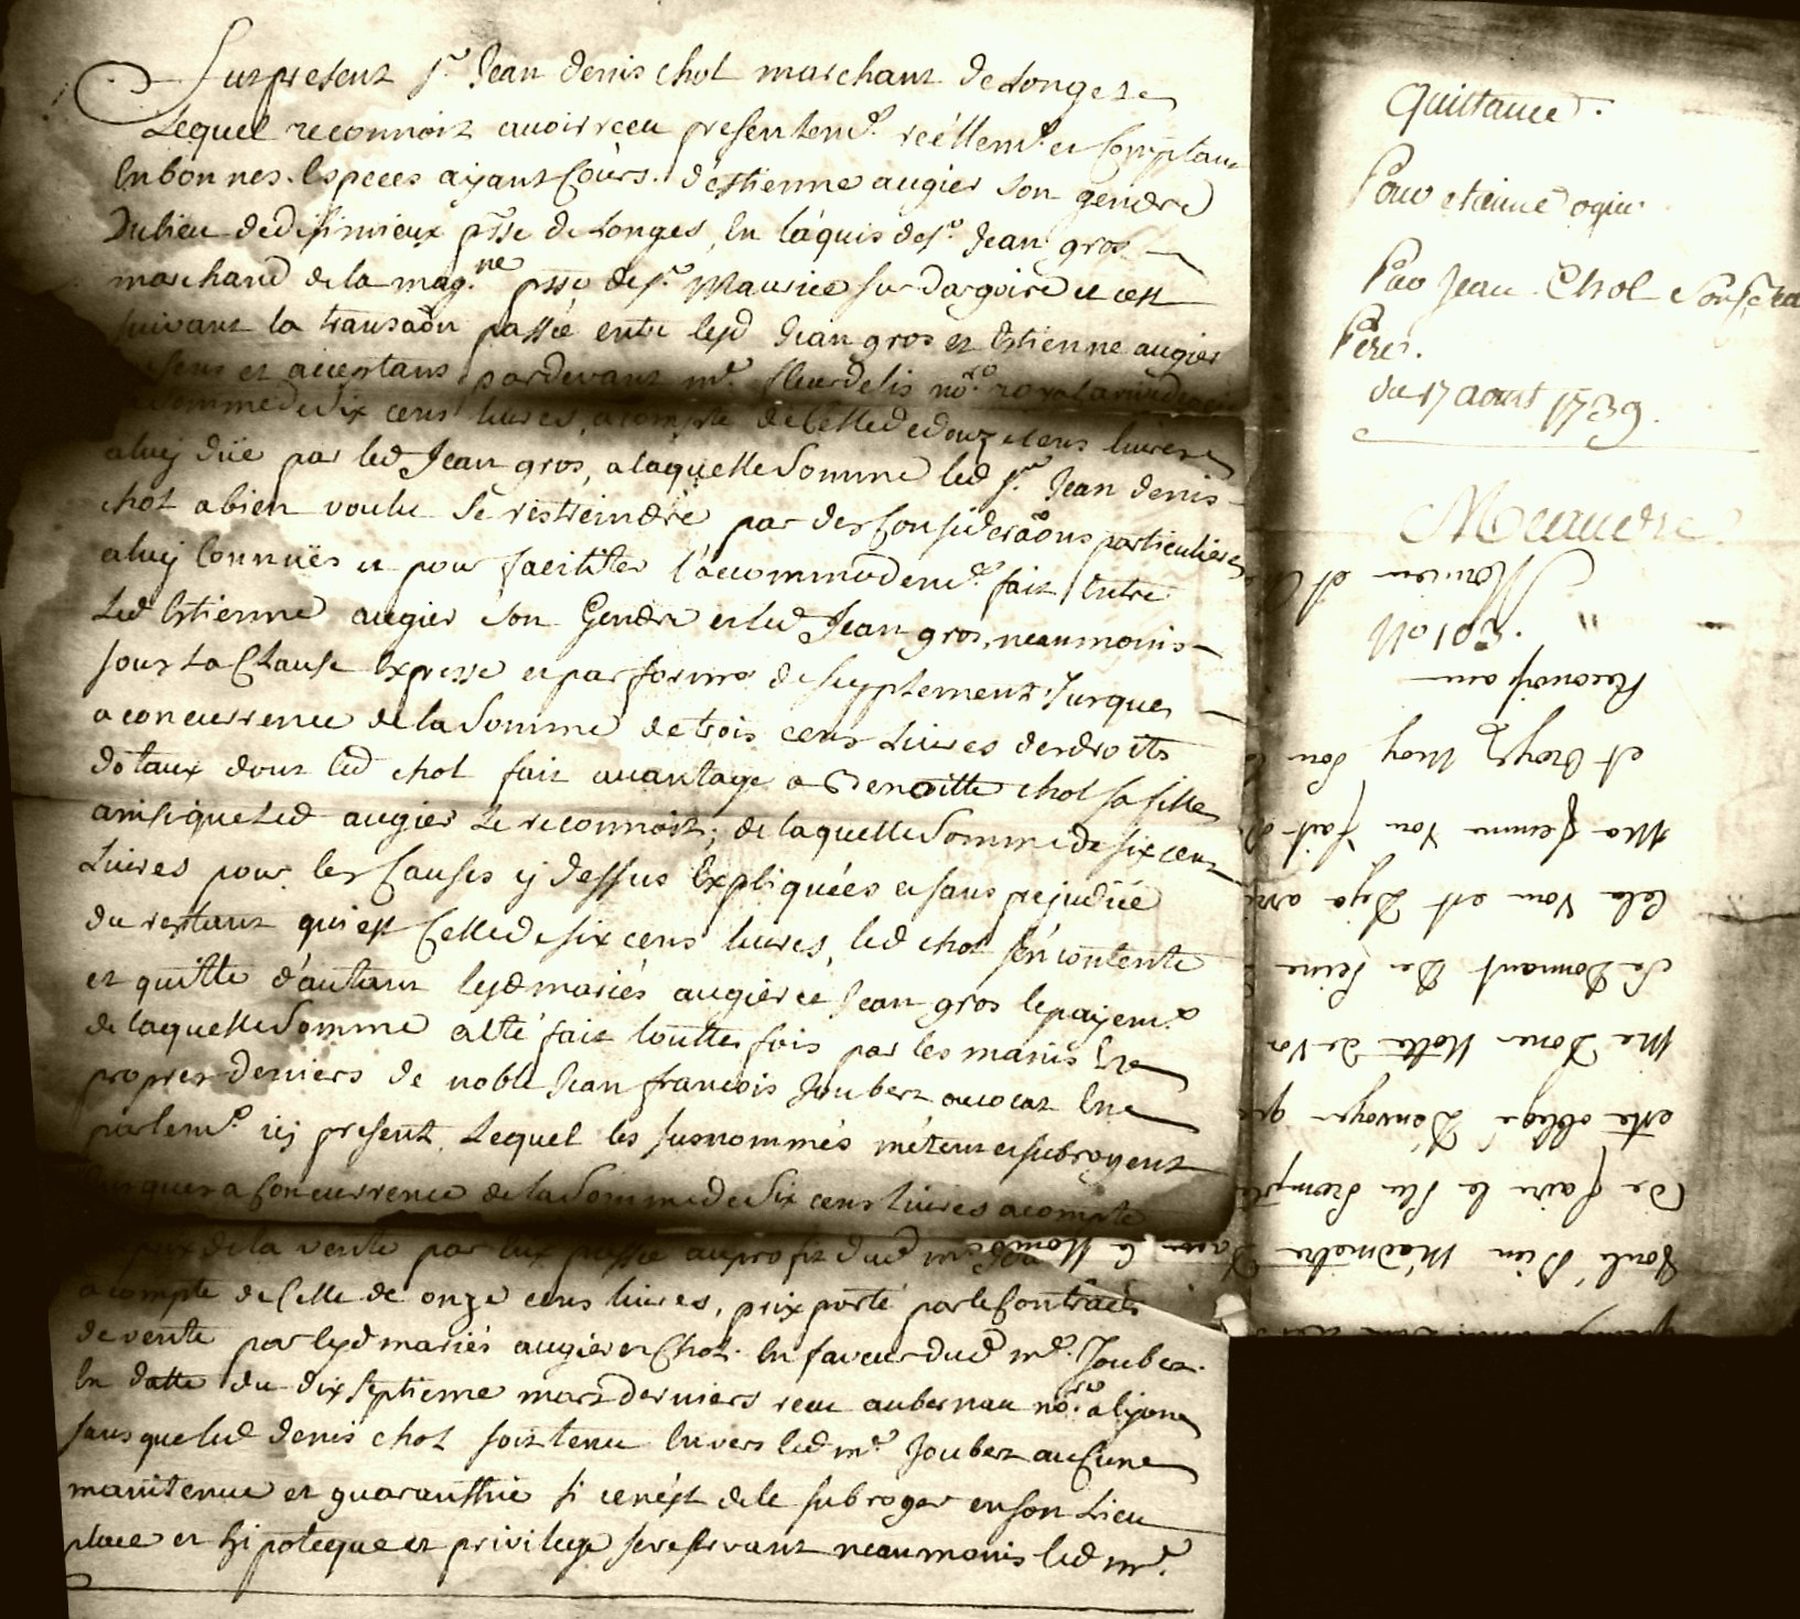 Fut present Sr. Jean denis chol marchant de Longes
Lequel reconnoit avoir receu presentemt. réellemt. et Comptant
En bonnes Especes ayant Cours. d'estienne augier son gendre
Du lieu de disimieux psse de Longes, En l'aquis de Sr. Jean gros
marchand de la magne. psse de St. Maurice sur dargoire et c'est
suivant la transaõn passée entre lesd Jean gros et Estienne augier
et aceptans pardevant me. fleurdelis nore. royal
somme de six cens livres, a compte de Celle de douze cens livres
a luy düe par led Jean gros, a laquelle Somme led Sr. Jean denis
chol a bien voulu se restreindre par des Consideraõns particulieres
a luy Connuës et pour faciliter l'accommodemt. fait Entre
Led Estienne augier son Gendre et led Jean gros, neanmoins
sous La Clause Expresse et par forme de supplement Jusques
a concurrence de la Somme de trois cens Livres des droits
dotaux dont led chol fait avantage a Benoitte chol sa fille
ainsi que Led augier Le reconnoit; de laquelle Somme de six cens
Livres pour les Causes cy dessus Expliquées et sans prejudice
du restant qui est Celle de six cens livres, led chol s'en contente
et quitte d'autant lesd mariés augier et Jean gros le payemt.
de laquelle Somme a été fait touttes fois par les mains Et
propres deniers de noble Jean francois Joubert avocat En
parlemt. icy present, Lequel les susnommés mettent et subrogent
Jusques a Concurrence de la Somme de Six cens livres a compte
prix de la vente par Eux passée au profit dud
a compte de Celle de onze cens livres, prix porté par le Contract
de vente par lesd mariés augier et Chol. En faveur dud me. Joubert.
En datte du dix septieme mars derniers receu aubernau nore. a lyon
sans que led denis chol soit tenu Envers led me. Joubert auCune
maintenue et guaranthie si ce n'est de le subroger en son Lieu
place et hipoteque et privilege se reservant neanmoins led me.
Quittance.
Pour etienne ogier
Par Jean Chol son
Pere.
du 17 aoust 1739.
Meaudre
Monsieur et
Reconoissan
et Croyez moy
Ma femme vous fait
Cela vous est Deja
se Donnant De peine
Me Doner Note de vos
este obligé D'envoyer
De faire le plus Prompte